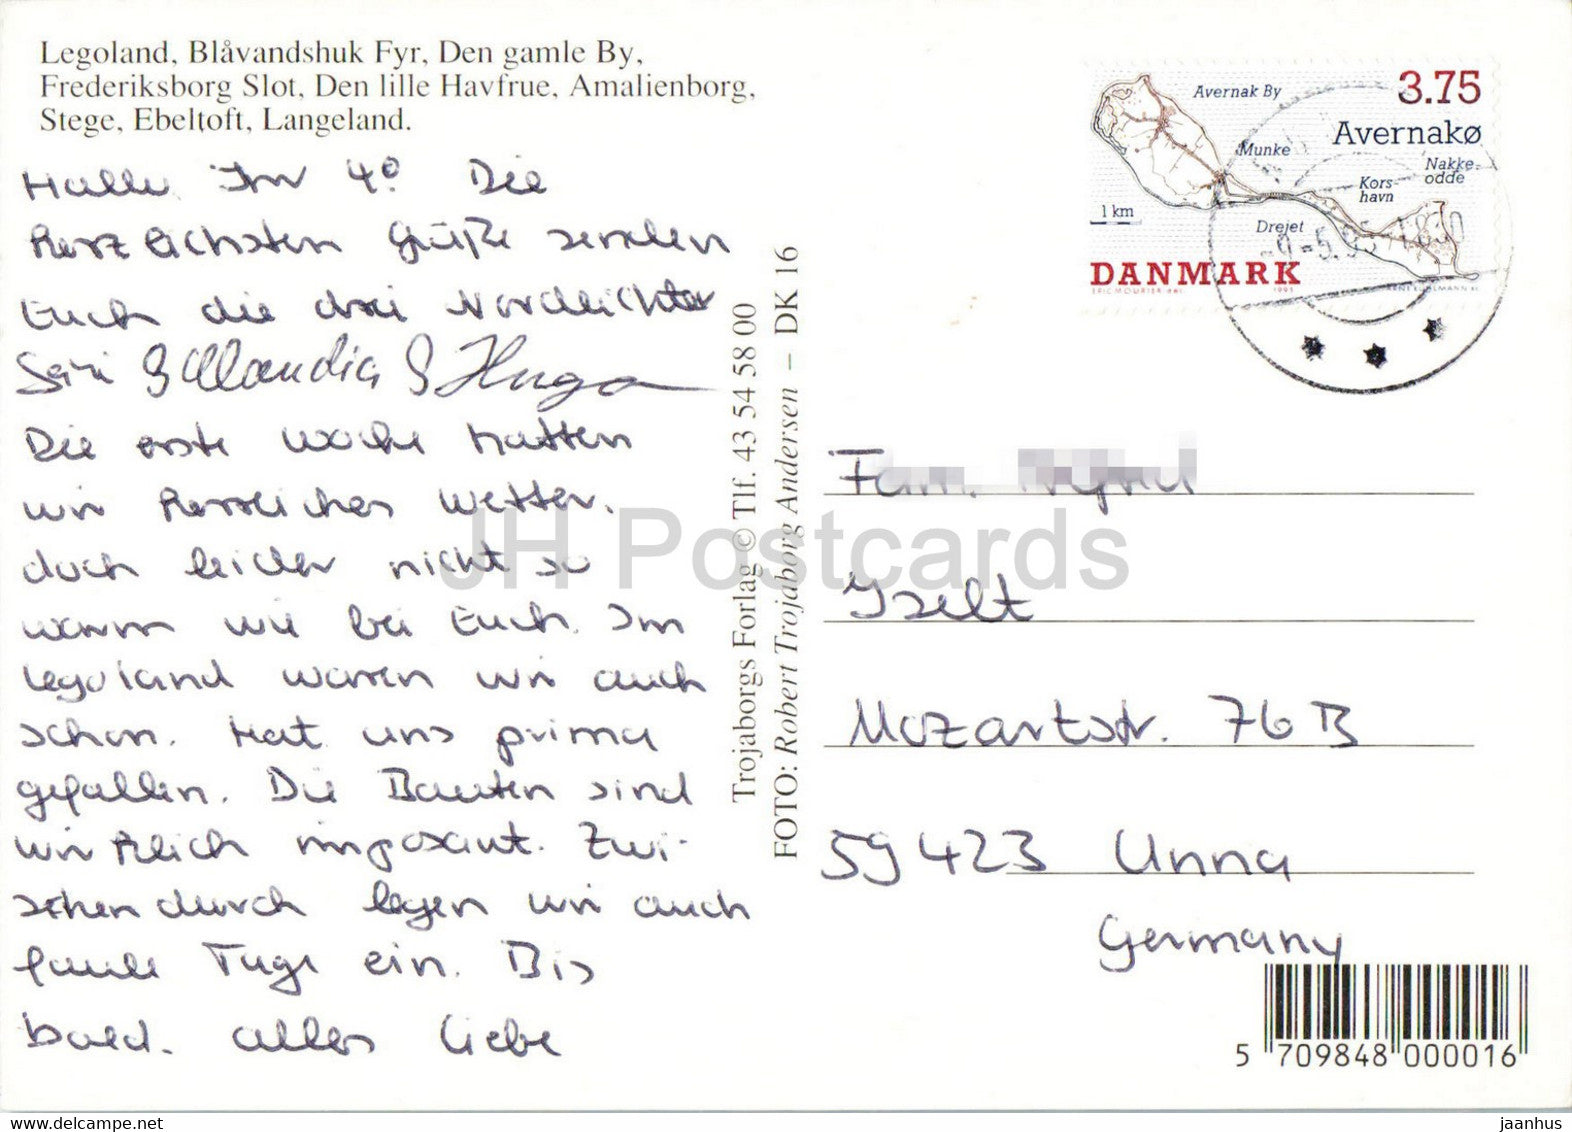 Legoland, Blåvandshuk Fyr, Den gamle By,
Frederiksborg Slot, Den lille Havfrue, Amalienborg,
Stege, Ebeltoft, Langeland.
Hallo Ihr 4. Die
herzlichsten Grüße senden
Euch die drei Nordlichter
& Claudia & Hugo
Die erste Woche hatten
wir herrliches Wetter,
doch leider nicht so
warm wie bei Euch. Im
Legoland waren wir auch
schon. Hat uns prima
gefallen. Die Bauten sind
wirklich imposant. Zwi-
schendurch legen wir auch
faule Tage ein. Bis
bald. alles Liebe
Trojaborgs Forlag © Tlf. 43 54 58 00
FOTO: Robert Trojaborg Andersen – DK 16
3.75
Avernakø
Avernak By
Munke
Nakke-
odde
Kors-
havn
Drejet
1 km
DANMARK
Fam.
Iselt
Mozartstr. 76 B
59423 Unna
Germany
5 709848 000016
JH Postcards
jaanhus
www.delcampe.net